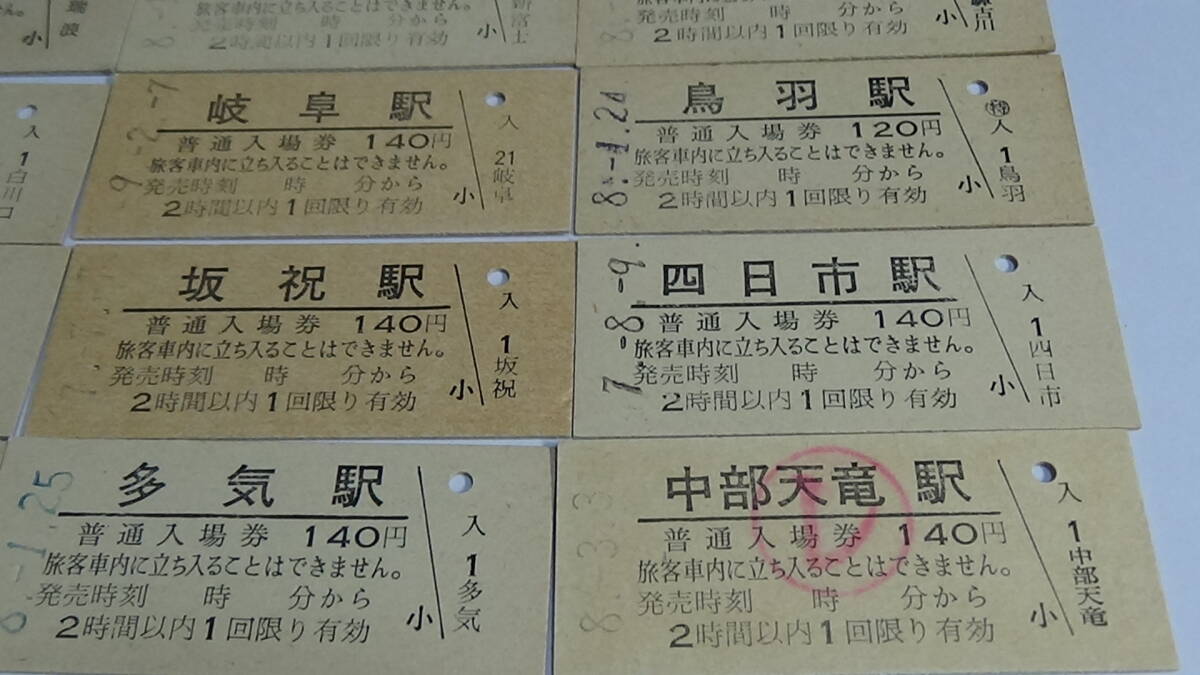 瑞浪
小
発売時刻 時 分から
2時間以内1回限り有効
小
新富士
発売時刻 時 分から
2時間以内1回限り有効
小
入
1白川口
9.-2.-7
岐阜駅
普通入場券 140円
旅客車内に立ち入ることはできません。
発売時刻 時 分から
2時間以内1回限り有効
小
入
21岐阜
8.-1.24
鳥羽駅
普通入場券 120円
旅客車内に立ち入ることはできません。
発売時刻 時 分から
2時間以内1回限り有効
小
特
入
1鳥羽
坂祝駅
普通入場券 140円
旅客車内に立ち入ることはできません。
発売時刻 時 分から
2時間以内1回限り有効
小
入
1坂祝
7.-8.-9.
四日市駅
普通入場券 140円
旅客車内に立ち入ることはできません。
発売時刻 時 分から
2時間以内1回限り有効
小
入
1四日市
8.-1.25
多気駅
普通入場券 140円
旅客車内に立ち入ることはできません。
発売時刻 時 分から
2時間以内1回限り有効
小
入
1多気
8.-3.-3
中部天竜駅
普通入場券 140円
旅客車内に立ち入ることはできません。
発売時刻 時 分から
2時間以内1回限り有効
小
入
1中部天竜